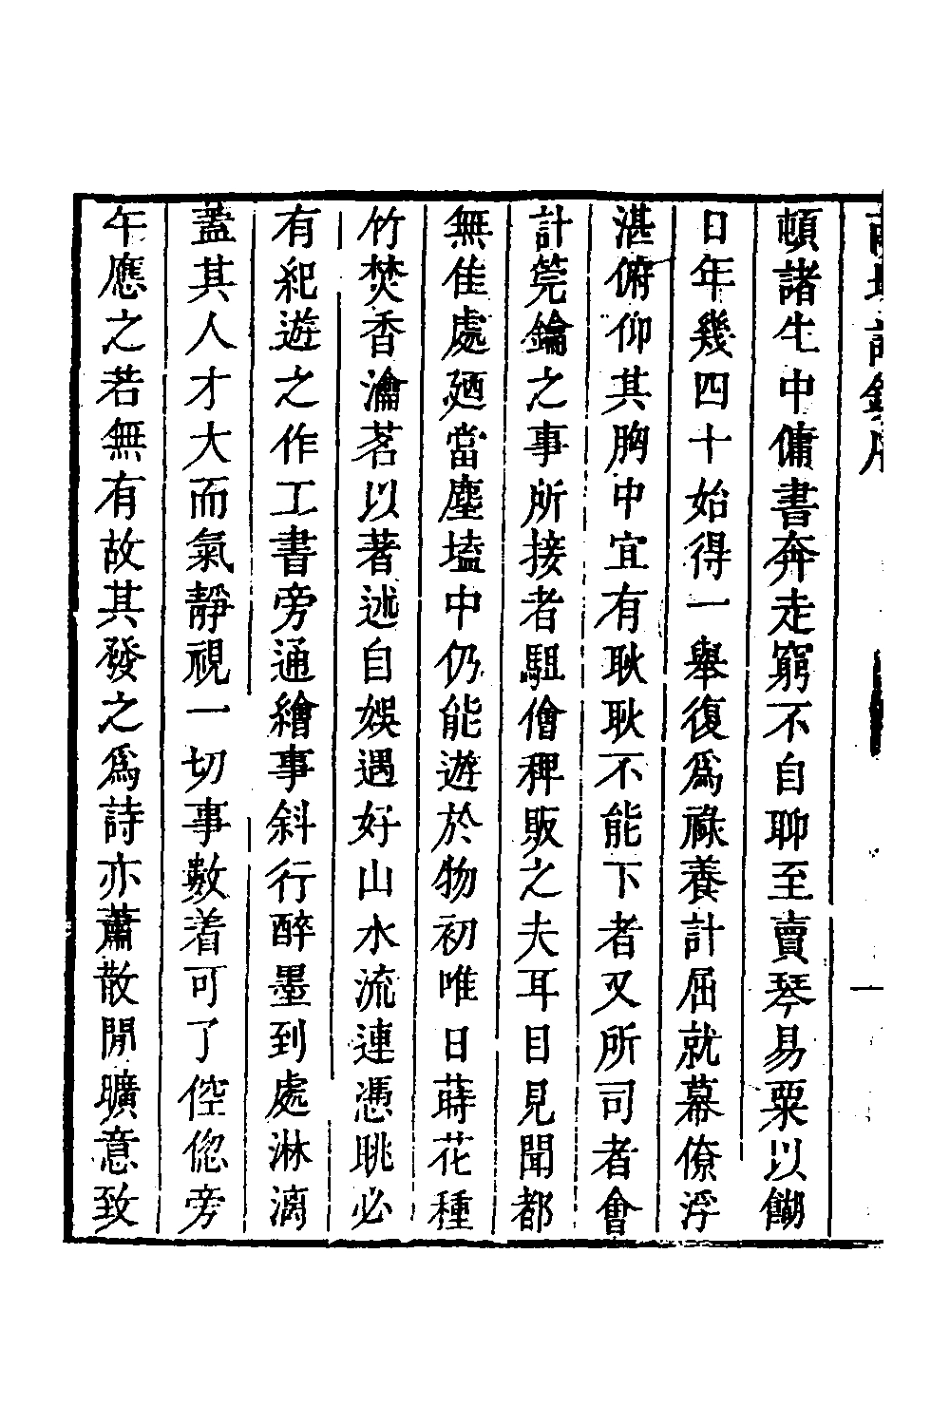 頓諸生中傭書奔走窮不自聊至賣琴易粟以餬
日年幾四十始得一舉復爲祿養計屈就幕僚浮
湛俯仰其胸中宜有耿耿不能下者又所司者會
計筦鑰之事所接者駔儈稗販之夫耳目見聞都
無佳處廼當塵壒中仍能遊於物初唯日蒔花種
竹焚香瀹茗以著述自娛遇好山水流連憑眺必
有紀遊之作工書旁通繪事斜行醉墨到處淋漓
蓋其人才大而氣靜視一切事數着可了倥傯旁
午應之若無有故其發之爲詩亦蕭散閒曠意致